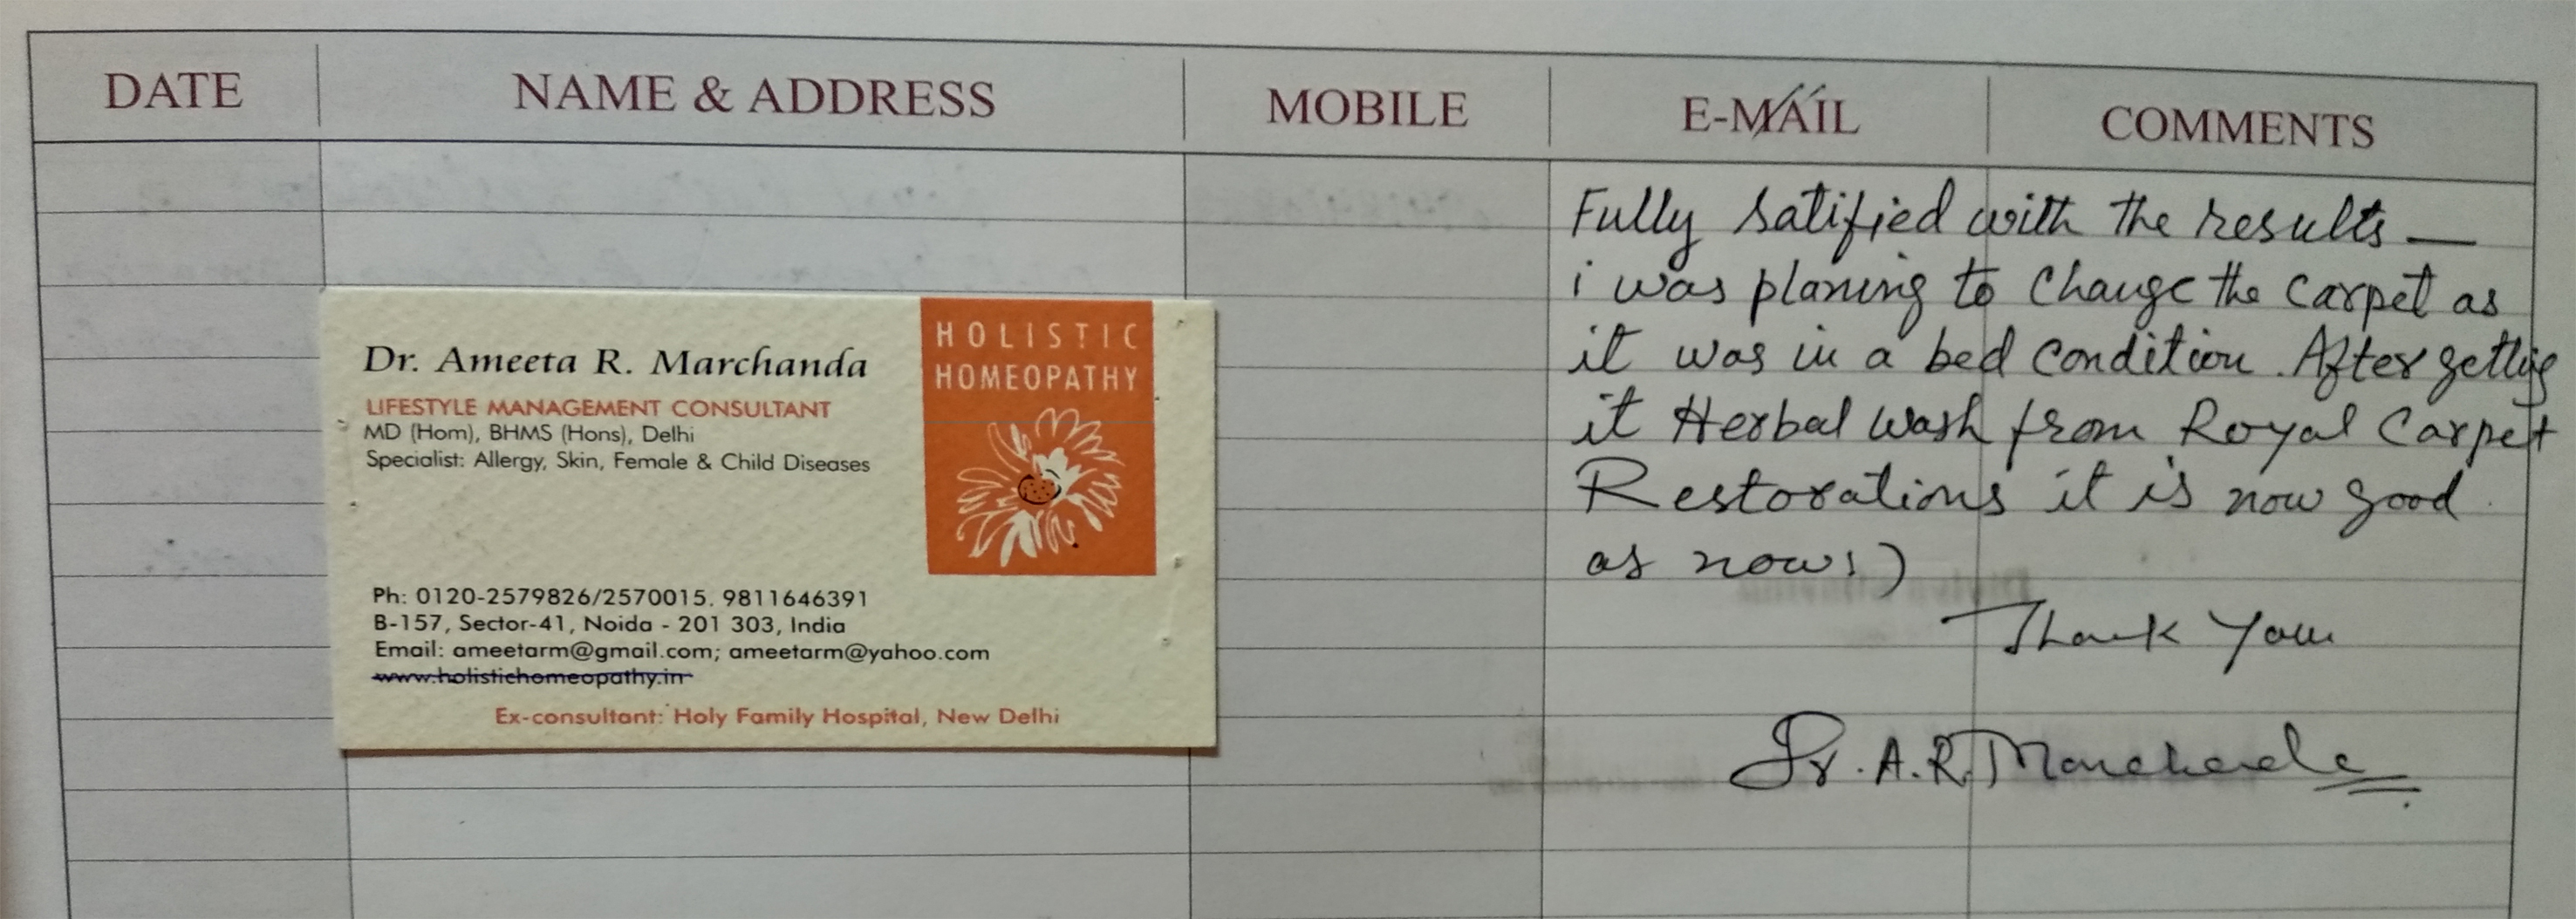 DATE NAME & ADDRESS MOBILE E-MAIL COMMENTS
Dr. Ameeta R. Marchanda
LIFESTYLE MANAGEMENT CONSULTANT
MD (Hom), BHMS (Hons), Delhi
Specialist: Allergy, Skin, Female & Child Diseases
HOLISTIC
HOMEOPATHY
Ph: 0120-2579826/2570015. 9811646391
B-157, Sector-41, Noida - 201 303, India
Email: ameetarm@gmail.com; ameetarm@yahoo.com
www.holistichomeopathy.in
Ex-consultant: Holy Family Hospital, New Delhi
Fully satified with the results —
i was planing to change the carpet as
it was in a bed condition. After getting
it Herbal Wash from Royal Carpet
Restorations it is now good
as now:)
Thank You
Dr. A.R. Marchanda